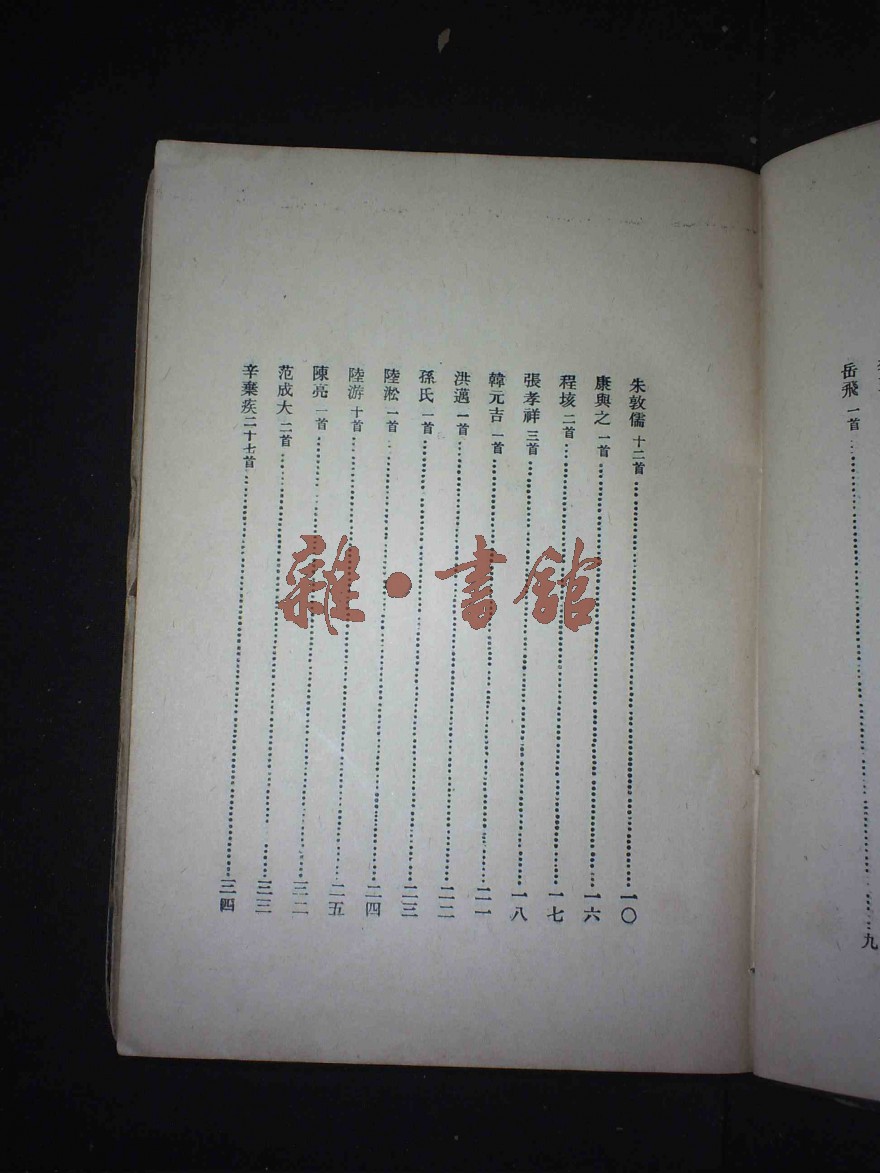 岳飛 一首 九
朱敦儒 十二首 一〇
康與之 一首 一六
程垓 二首 一七
張孝祥 三首 一八
韓元吉 一首 二一
洪邁 一首 二二
孫氏 一首 二三
陸淞 一首 二四
陸游 十首 二五
陳亮 一首 三二
范成大 二首 三三
辛棄疾 二十七首 三四
雜·書館